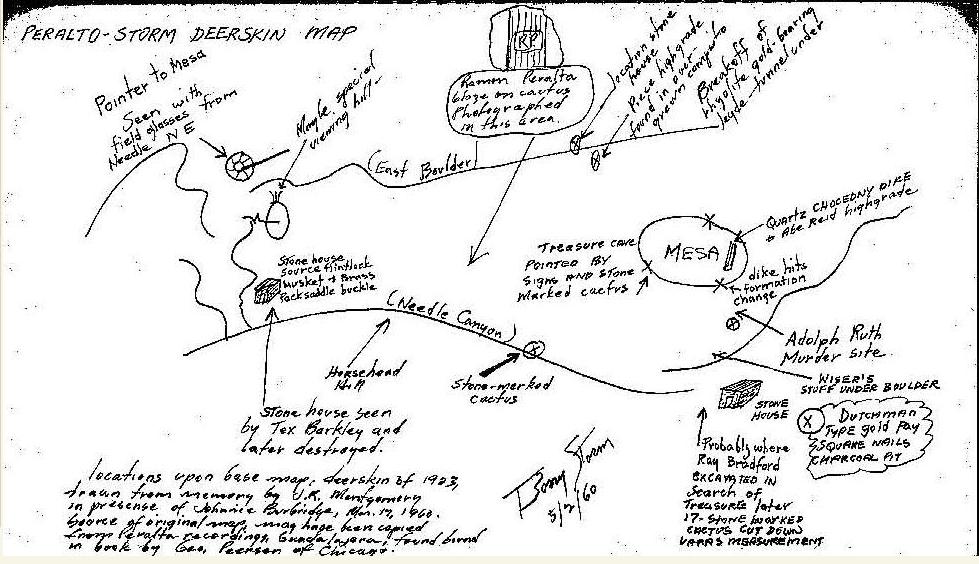 PERALTO-STORM DEERSKIN MAP
Pointer to Mesa
Seen with
field glasses from
Needle NE
Maybe special
viewing hill-
RP
Ramon Peralta
gloze on cactus
Photographed
in this area.
location stone
house
Piece highgrade
found in over-
grown campsite
Breakoff of
rhyolite gold-bearing
tunnel under
(East Boulder)
Stone house
source flintlock
Musket & Brass
Packsaddle buckle
Treasure cave
POINTED BY
SIGNS AND STONE
Marked cactus
MESA
QUARTZ CHOCEDNY DIKE
& Abe Reid highgrade
dike hits
formation
change
(Needle Canyon)
Adolph Ruth
Murder site
WISER'S
STUFF UNDER BOULDER
Horsehead
Hill
Stone-marked
cactus
Stone house seen
by Tex Barkley and
later destroyed.
STONE
HOUSE
DUTCHMAN
TYPE gold Pay
SQUARE NAILS
CHARCOAL PIT
Probably where
Ray Bradford
EXCAVATED IN
Search of
Treasure later
17-STONE WORKED
CACTUS CUT DOWN
VARAS MEASUREMENT
Barry Storm
5/2/60
locations upon base map, deerskin of 1923,
drawn from memory by U.R. Montgomery
in presense of Johnnie Burbridge, Mar. 17, 1960.
Source of original map, may have been copied
from Peralta recordings, Guadalajara, found bound
in book by Geo. Peerson of Chicago.